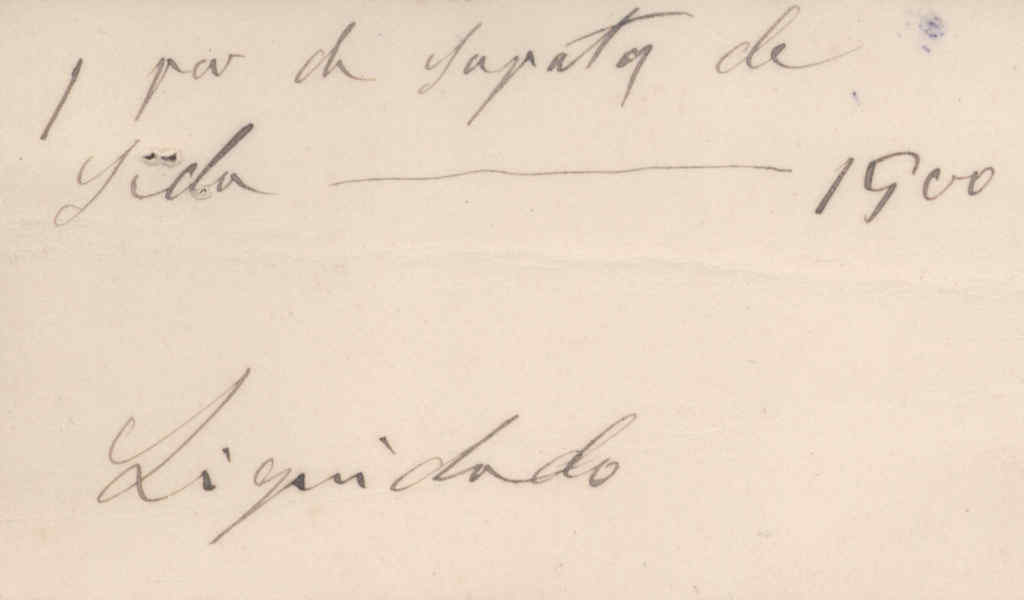 1 par de sapatos de
seda — 1900
Liquidado